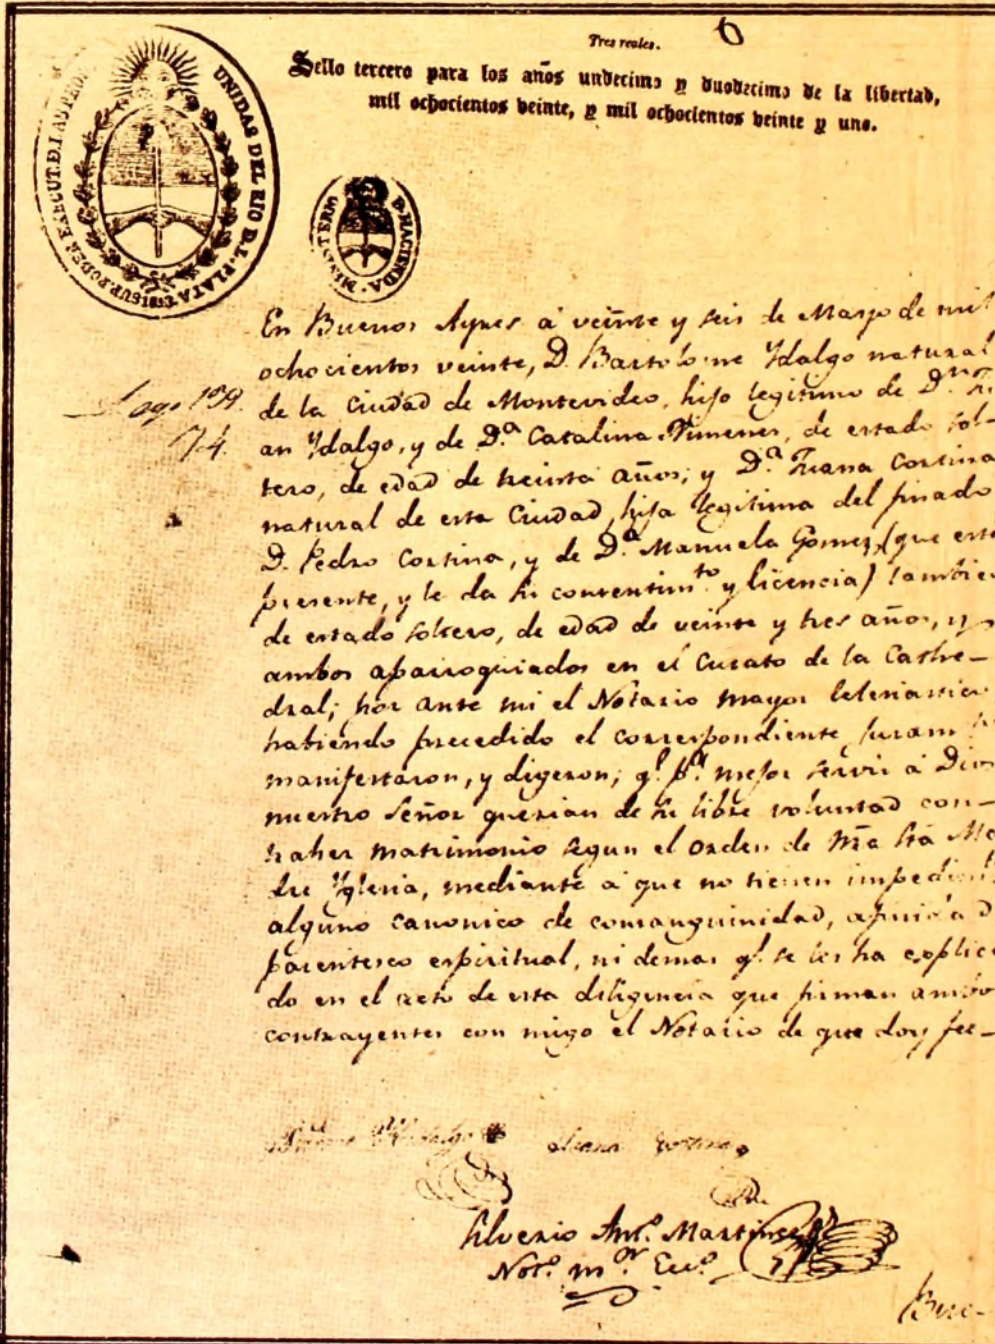 Tres reales. 6
Sello tercero para los años undecimo y duodecimo de la libertad,
mil ochocientos veinte, y mil ochocientos veinte y uno.
UNIDAS DEL RIO D.L. PLATA
SUP. PODER EXECUT. D.
MINISTERIO D. HACIENDA.
En Buenos Ayres á veinte y seis de Marzo de mil
ochocientos veinte, D. Bartolome Ydalgo natural
de la Ciudad de Montevideo, hijo legitimo de D.n Ju
an Ydalgo, y de D.a Catalina Ximenes, de estado sol-
tero, de edad de treinta años; y D.a Juana Cortina
natural de esta Ciudad, hija legitima del finado
D. Pedro Cortina, y de D.a Manuela Gomez, (que está
presente, y le da su consentim.to y licencia) tambien
de estado soltero, de edad de veinte y tres años, y
ambos aparroquiados en el Curato de la Cathe-
dral; por ante mi el Notario mayor Eclesiastico
habiendo precedido el correspondiente juram.to
manifestaron, y digeron; q.e p.a mejor servir á Dios
nuestro Señor querian de su libre voluntad con-
traher matrimonio segun el orden de Nra Sta Ma
dre Yglesia, mediante á que no tienen impedim.to
alguno canonico de consanguinidad, afinidad
parentesco espiritual, ni demas q.e se les ha explica
do en el acto de esta diligencia que firman ambos
contrayentes con migo el Notario de que doy fee-
Hidalgo Juana Cortina
Silverio Ant.o Martinez
Not.o m.or Ecc.o
Bue-